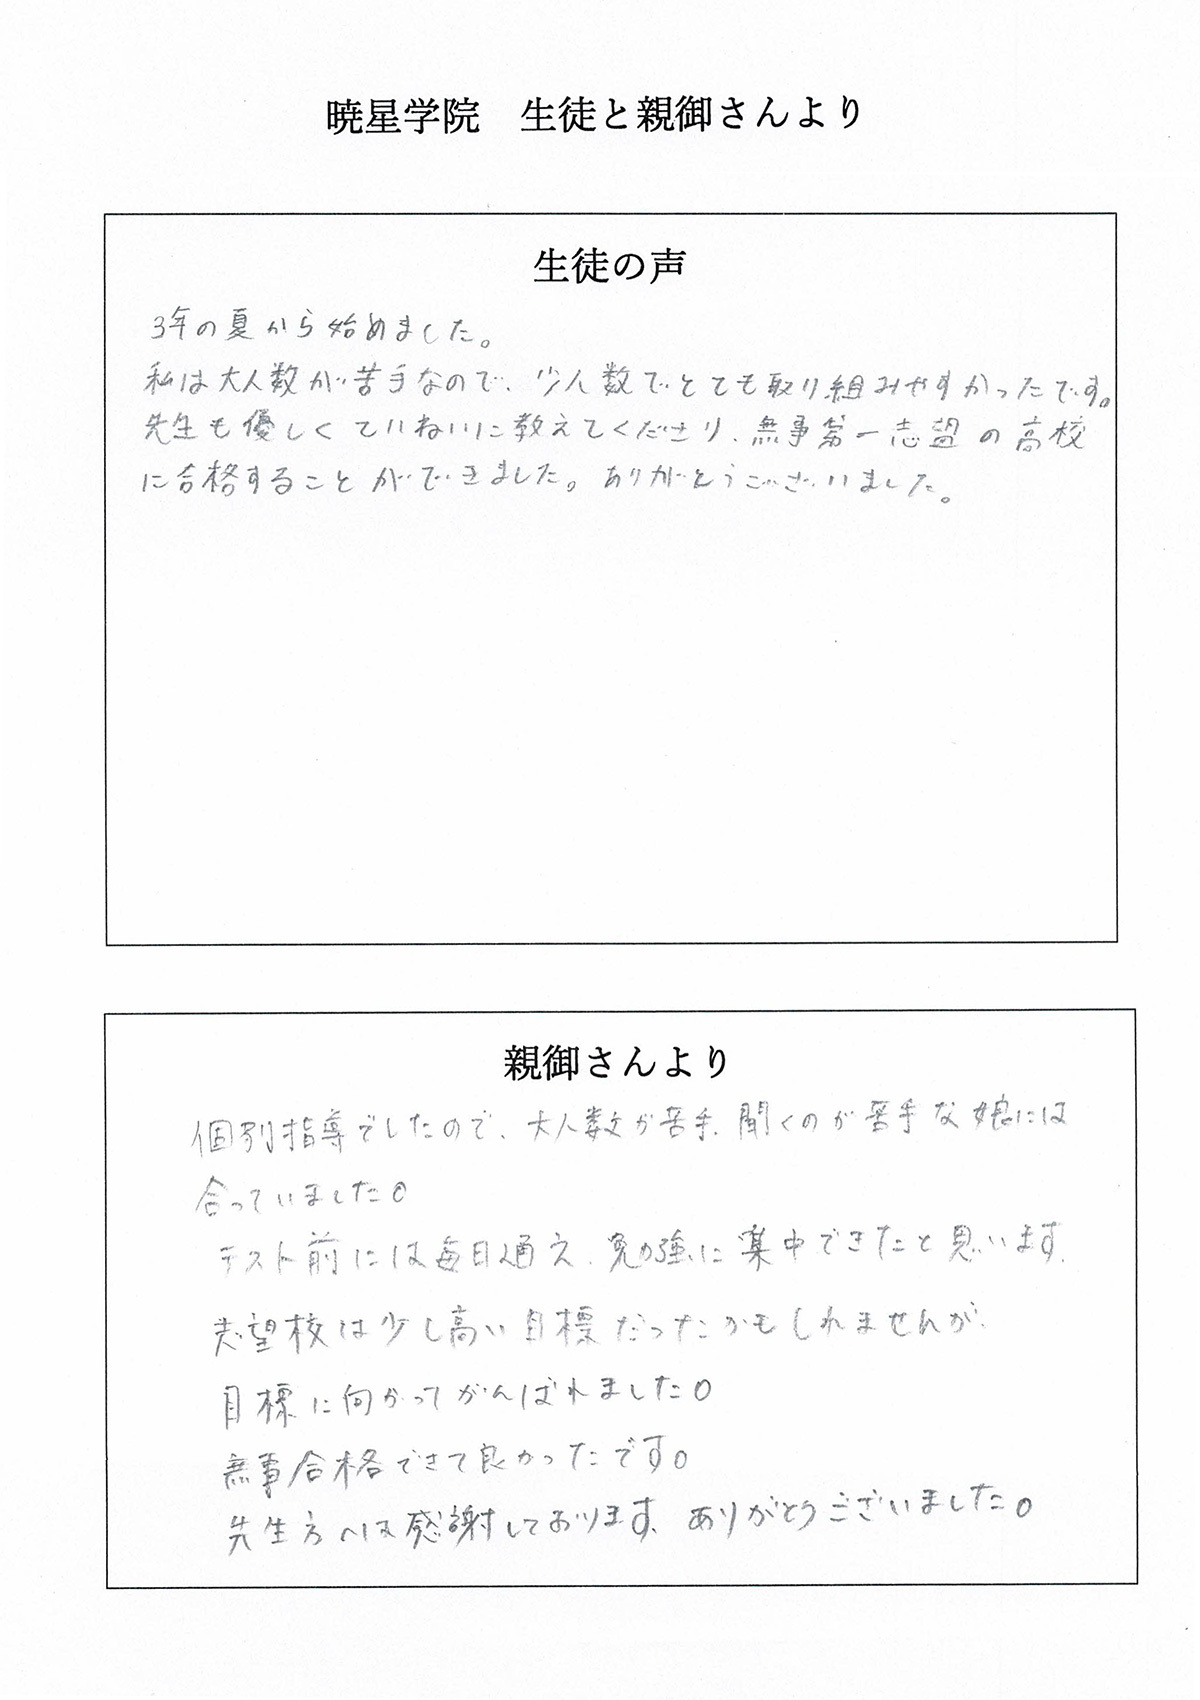 暁星学院　生徒と親御さんより
生徒の声
3年の夏から始めました。
私は大人数が苦手なので、少人数でとても取り組みやすかったです。
先生も優しくていねいに教えてくださり、無事第一志望の高校
に合格することができました。ありがとうございました。
親御さんより
個別指導でしたので、大人数が苦手、聞くのが苦手な娘には
合っていました。
テスト前には毎日通え、勉強に集中できたと思います。
志望校は少し高い目標だったかもしれませんが、
目標に向かってがんばれました。
無事合格できて良かったです。
先生方へは感謝しております、ありがとうございました。